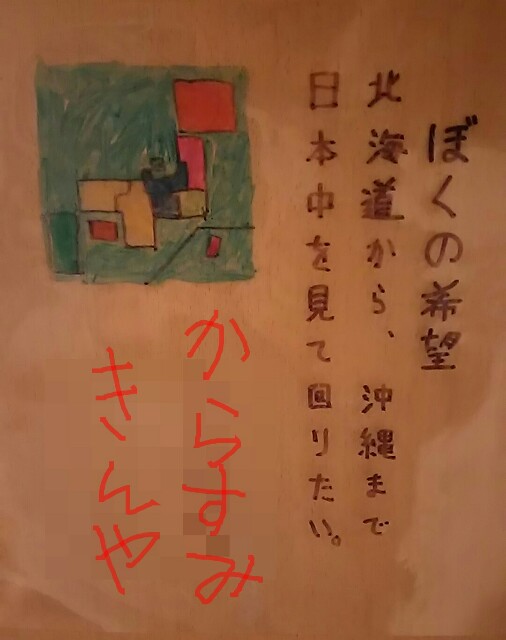 ぼくの希望
北海道から、沖縄まで
日本中を見て回りたい。
からすみ
きんや